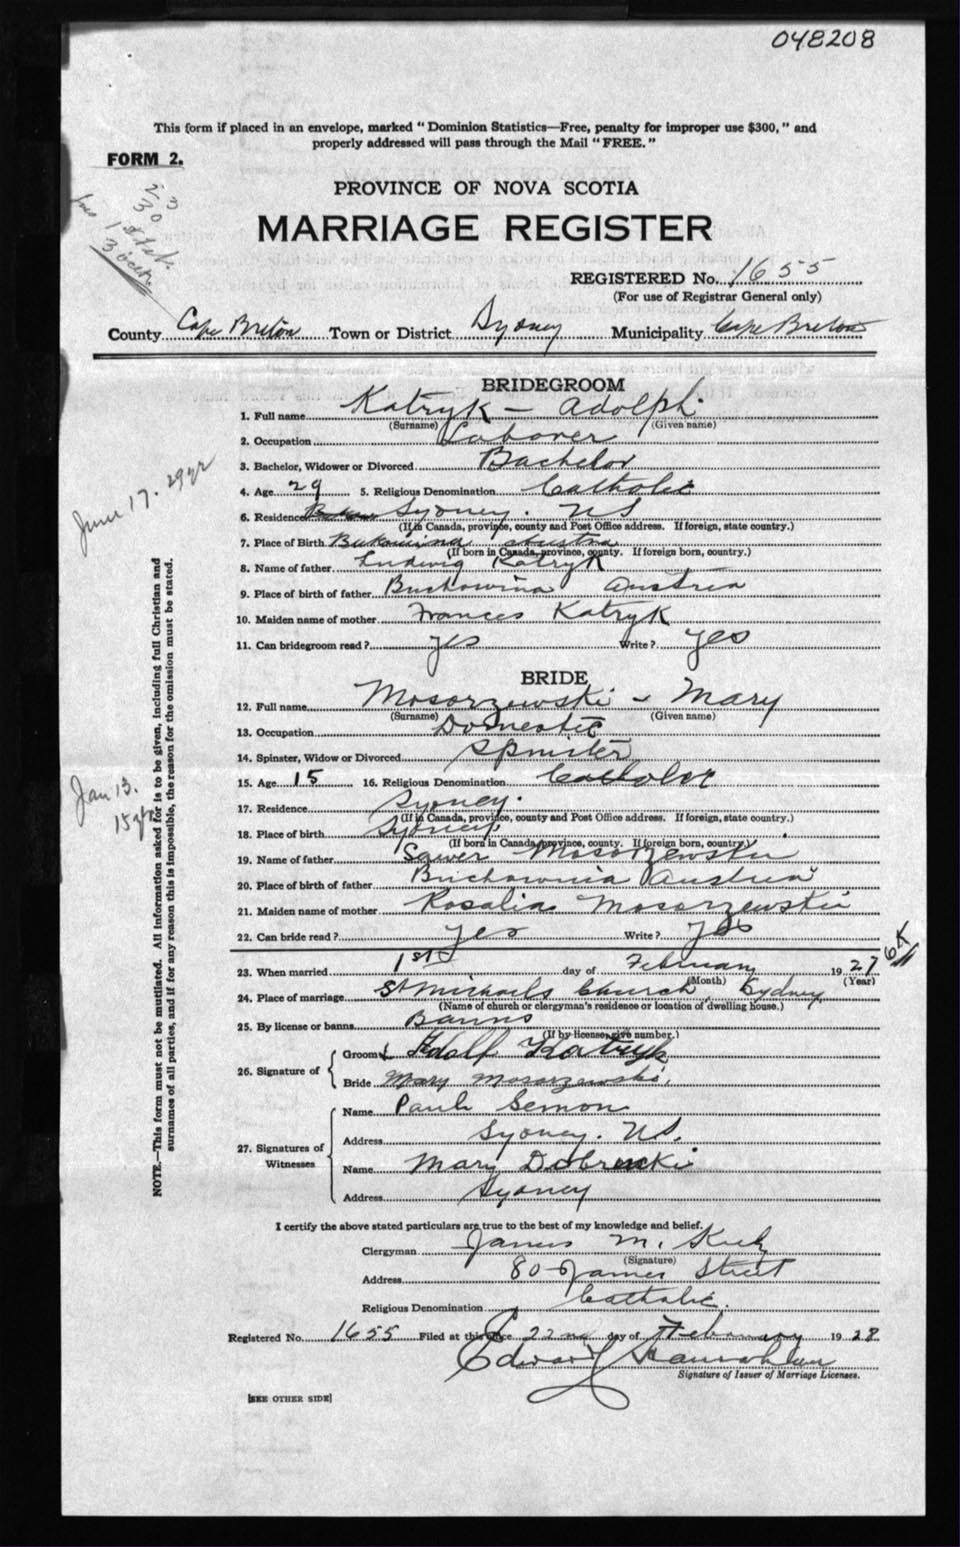 048208
This form if placed in an envelope, marked "Dominion Statistics—Free, penalty for improper use $300," and
properly addressed will pass through the Mail "FREE."
FORM 2.
PROVINCE OF NOVA SCOTIA
MARRIAGE REGISTER
REGISTERED No. 1655
(For use of Registrar General only)
County Cape Breton Town or District Sydney Municipality Cape Breton
BRIDEGROOM
1. Full name Katryk – Adolph
(Surname) (Given name)
2. Occupation Laborer
3. Bachelor, Widower or Divorced Bachelor
4. Age 29 5. Religious Denomination Catholic
6. Residence Sydney. NS
(If in Canada, province, county and Post Office address. If foreign, state country.)
7. Place of Birth Bukowina Austria
(If born in Canada, province, county. If foreign born, country.)
8. Name of father Ludwig Katryk
9. Place of birth of father Buchowina Austria
10. Maiden name of mother Frances Katryk
11. Can bridegroom read? yes Write? yes
BRIDE
12. Full name Mosorzewski – Mary
(Surname) (Given name)
13. Occupation Domestic
14. Spinster, Widow or Divorced Spinster
15. Age 15 16. Religious Denomination Catholic
17. Residence Sydney.
(If in Canada, province, county and Post Office address. If foreign, state country.)
18. Place of birth Sydney
(If born in Canada, province, county. If foreign born, country)
19. Name of father Mosorzewski
20. Place of birth of father Buchownia Austria
21. Maiden name of mother Rosalia Mosorzewski
22. Can bride read? yes Write? yes
23. When married 1st day of February 1927
(Month) (Year)
24. Place of marriage St Michaels Church, Sydney
(Name of church or clergyman's residence or location of dwelling house.)
25. By license or banns Banns
(If by license, give number.)
26. Signature of
Groom Adolf Katryk
Bride Mary Mosorzewski.
27. Signatures of
Witnesses
Name Paul Semon
Address Sydney. N.S.
Name Mary Dobrucki
Address Sydney
I certify the above stated particulars are true to the best of my knowledge and belief.
Clergyman James M. Kiely
(Signature)
Address 80 James Street
Religious Denomination Catholic.
Registered No. 1655 Filed at this office 22nd day of February 1928
Edward Hanrahan
Signature of Issuer of Marriage Licenses.
[SEE OTHER SIDE]
June 17. 29yr
Jan 13.
15yr
NOTE.—This form must not be mutilated. All information asked for is to be given, including full Christian and
surnames of all parties, and if for any reason this is impossible, the reason for the omission must be stated.